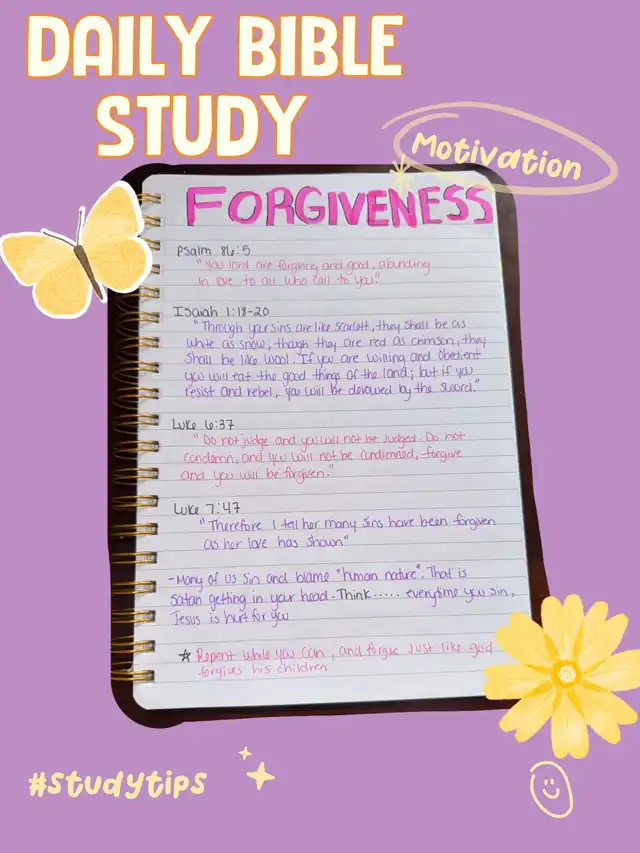 DAILY BIBLE
STUDY
Motivation
FORGIVENESS
Psalm 86:5
"You lord are forgiving and good, abounding
in love to all who call to you."
Isaiah 1:18-20
"Through your sins are like scarlett, they shall be as
white as snow, though they are red as crimson, they
shall be like wool. If you are willing and obedient
you will eat the good things of the land; but if you
resist and rebel, you will be devoured by the sword."
Luke 6:37
"Do not judge and you will not be judged. Do not
condemn, and you will not be condemned, forgive
and you will be forgiven."
Luke 7:47
"Therefore I tell her many sins have been forgiven
as her love has shown"
-Many of us sin and blame "human nature". That is
satan getting in your head. Think..... everytime you sin,
Jesus is hurt for you
☆ Repent while you can, and forgive just like god
forgives his children
#studytips